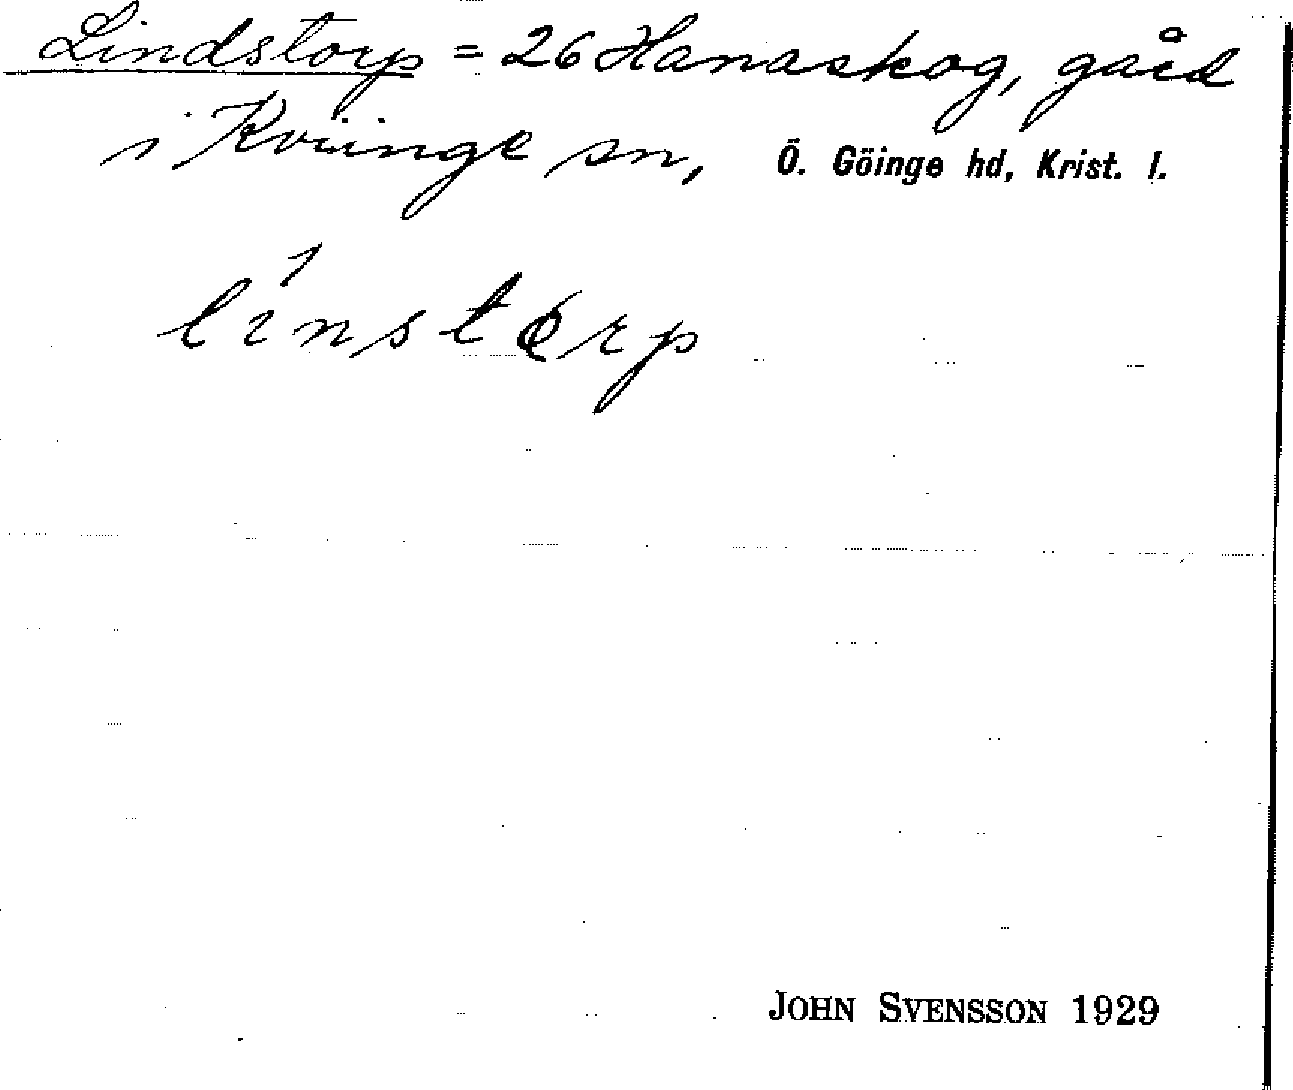 Lindstorp = 26 Hanaskog, gård
i Kviinge sn, Ö. Göinge hd, Krist. l.
línstørp
JOHN SVENSSON 1929